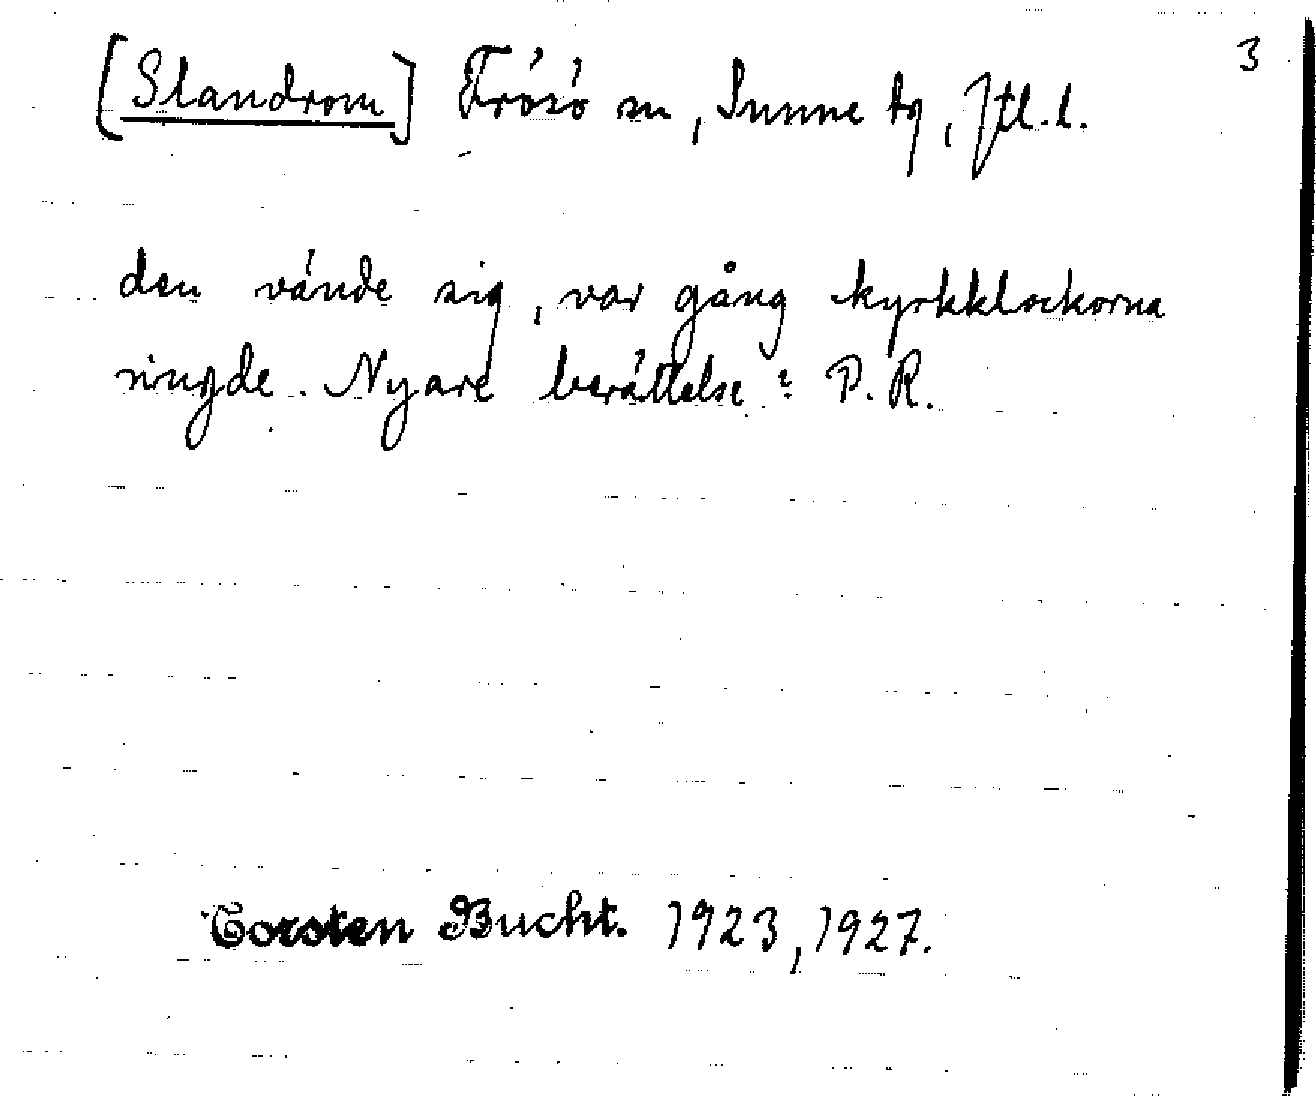 3
[Slandrom] Frösö sn, Sunne tg, Jtl. l.
den vände sig, var gång kyrkklockorna
ringde. Nyare berättelse? P. R.
Torsten Bucht. 1923, 1927.